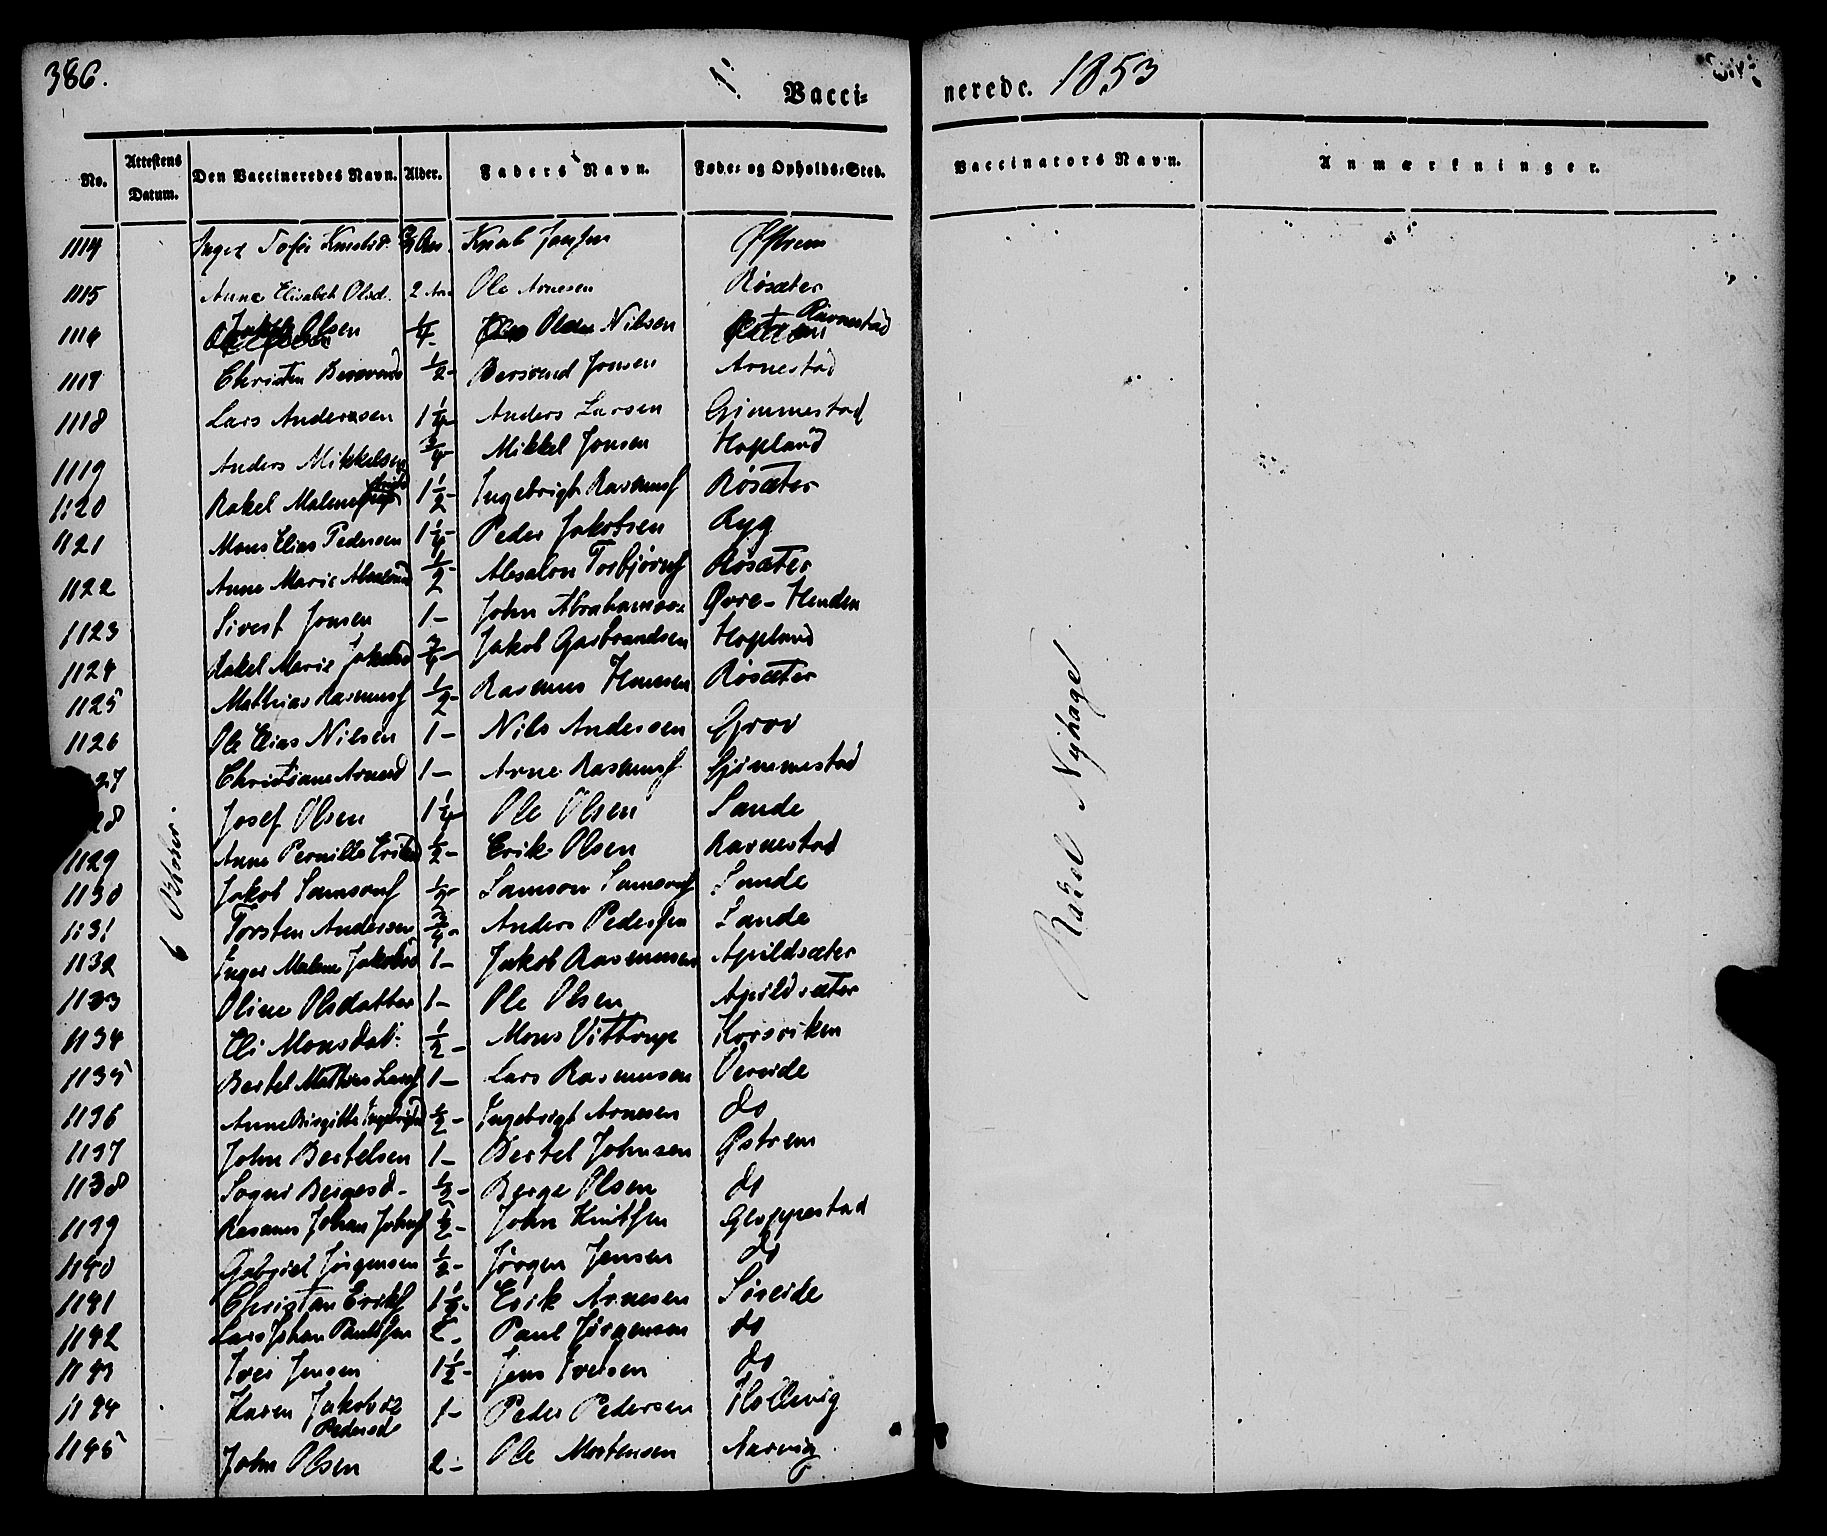 386.
Vaccinerede. 1853
No. | Attestens Datum. | Den Vaccineredes Navn. | Alder. | Faders Navn. | Føde- og Opholds-Sted. | Vaccinators Navn. | Anmærkninger.
6 Oktober.
Rakel Nyhagel
1114 Inger Sofie Knutsd. Østrem
1115 Anne Elisabeth Olsd. 2 Aar Ole Arnesen Røsæter
1116 Jakob Olsen 1/4- Ole Nilsen Ravnestad
1117 Christen 1/2- Jonsen Arnestad
1118 Lars Andersen 1 1/4- Anders Larsen Gimmestad
1119 Anders Mikkelsen 3/4- Mikkel Jonsen Hopland
1120 Rakel Malene 1 1/2- Ingebrigt Rasmusf Røsæter
1121 Mons Elias Pedersen 1 1/4- Peder Jakobsen Ryg
1122 Anne Marie Absalonsd 1/2- Absalon Torbjørnsf Røsæter
1123 Sivert Jonsen 1- John Abrahamsen Øvre-Henden
1124 Rakel Marie Jakobsd 3/4- Jakob Gasbrandsen Hopland
1125 Mathias Rasmusf 1/2- Rasmus Hansen Røsæter
1126 Ole Elias Nilsen 1- Nils Andersen Grov
27 Christiane Arnesd 1- Arne Rasmusf Gjimmestad
28 Josef Olsen 1 1/4- Ole Olsen Sande
1129 Anne Pernille Eriksd 1/2- Erik Olsen Ravnestad
1130 Jakob Samsonf Samson Samsonf Sande
1131 Torsten Andersen 3/4- Anders Pedersen Sande
1132 Inger Malene Jakobsd 1- Jakob Rasmusen Apildsæter
1133 Oline Olsdatter 1- Ole Olsen Apildsæter
1134 Eli Monsdat: 1/2- Mons Vittrup Korsviken
1135 Bertel Mathias Larsf 1- Lars Rasmusen Vereide
1136 Anne Birgitte Ingebrigtsd 1/2- Ingebrigt Arnesen do
1137 John Bertelsen 1- Bertel Johnsen Østrem
1138 Sogni Børgesd- 1/2- Børge Olsen do
1139 Rasmus Johan Johnsf 1/2- John Knutsen Gloppestad
1140 Gabriel Jørgensen 1/2- Jørgen Jensen do
1141 Christian Eriksf Erik Arnesen Søreide
1142 Lars Johan Paulsen 2- Paul Jørgensen do
1143 Iver Jensen 1 1/2- Jens Iversen do
1144 Karen Jakobine Pedersd 1- Peder Pedersen Hollevig
1145 John Olsen 2- Ole Mortensen Narvig